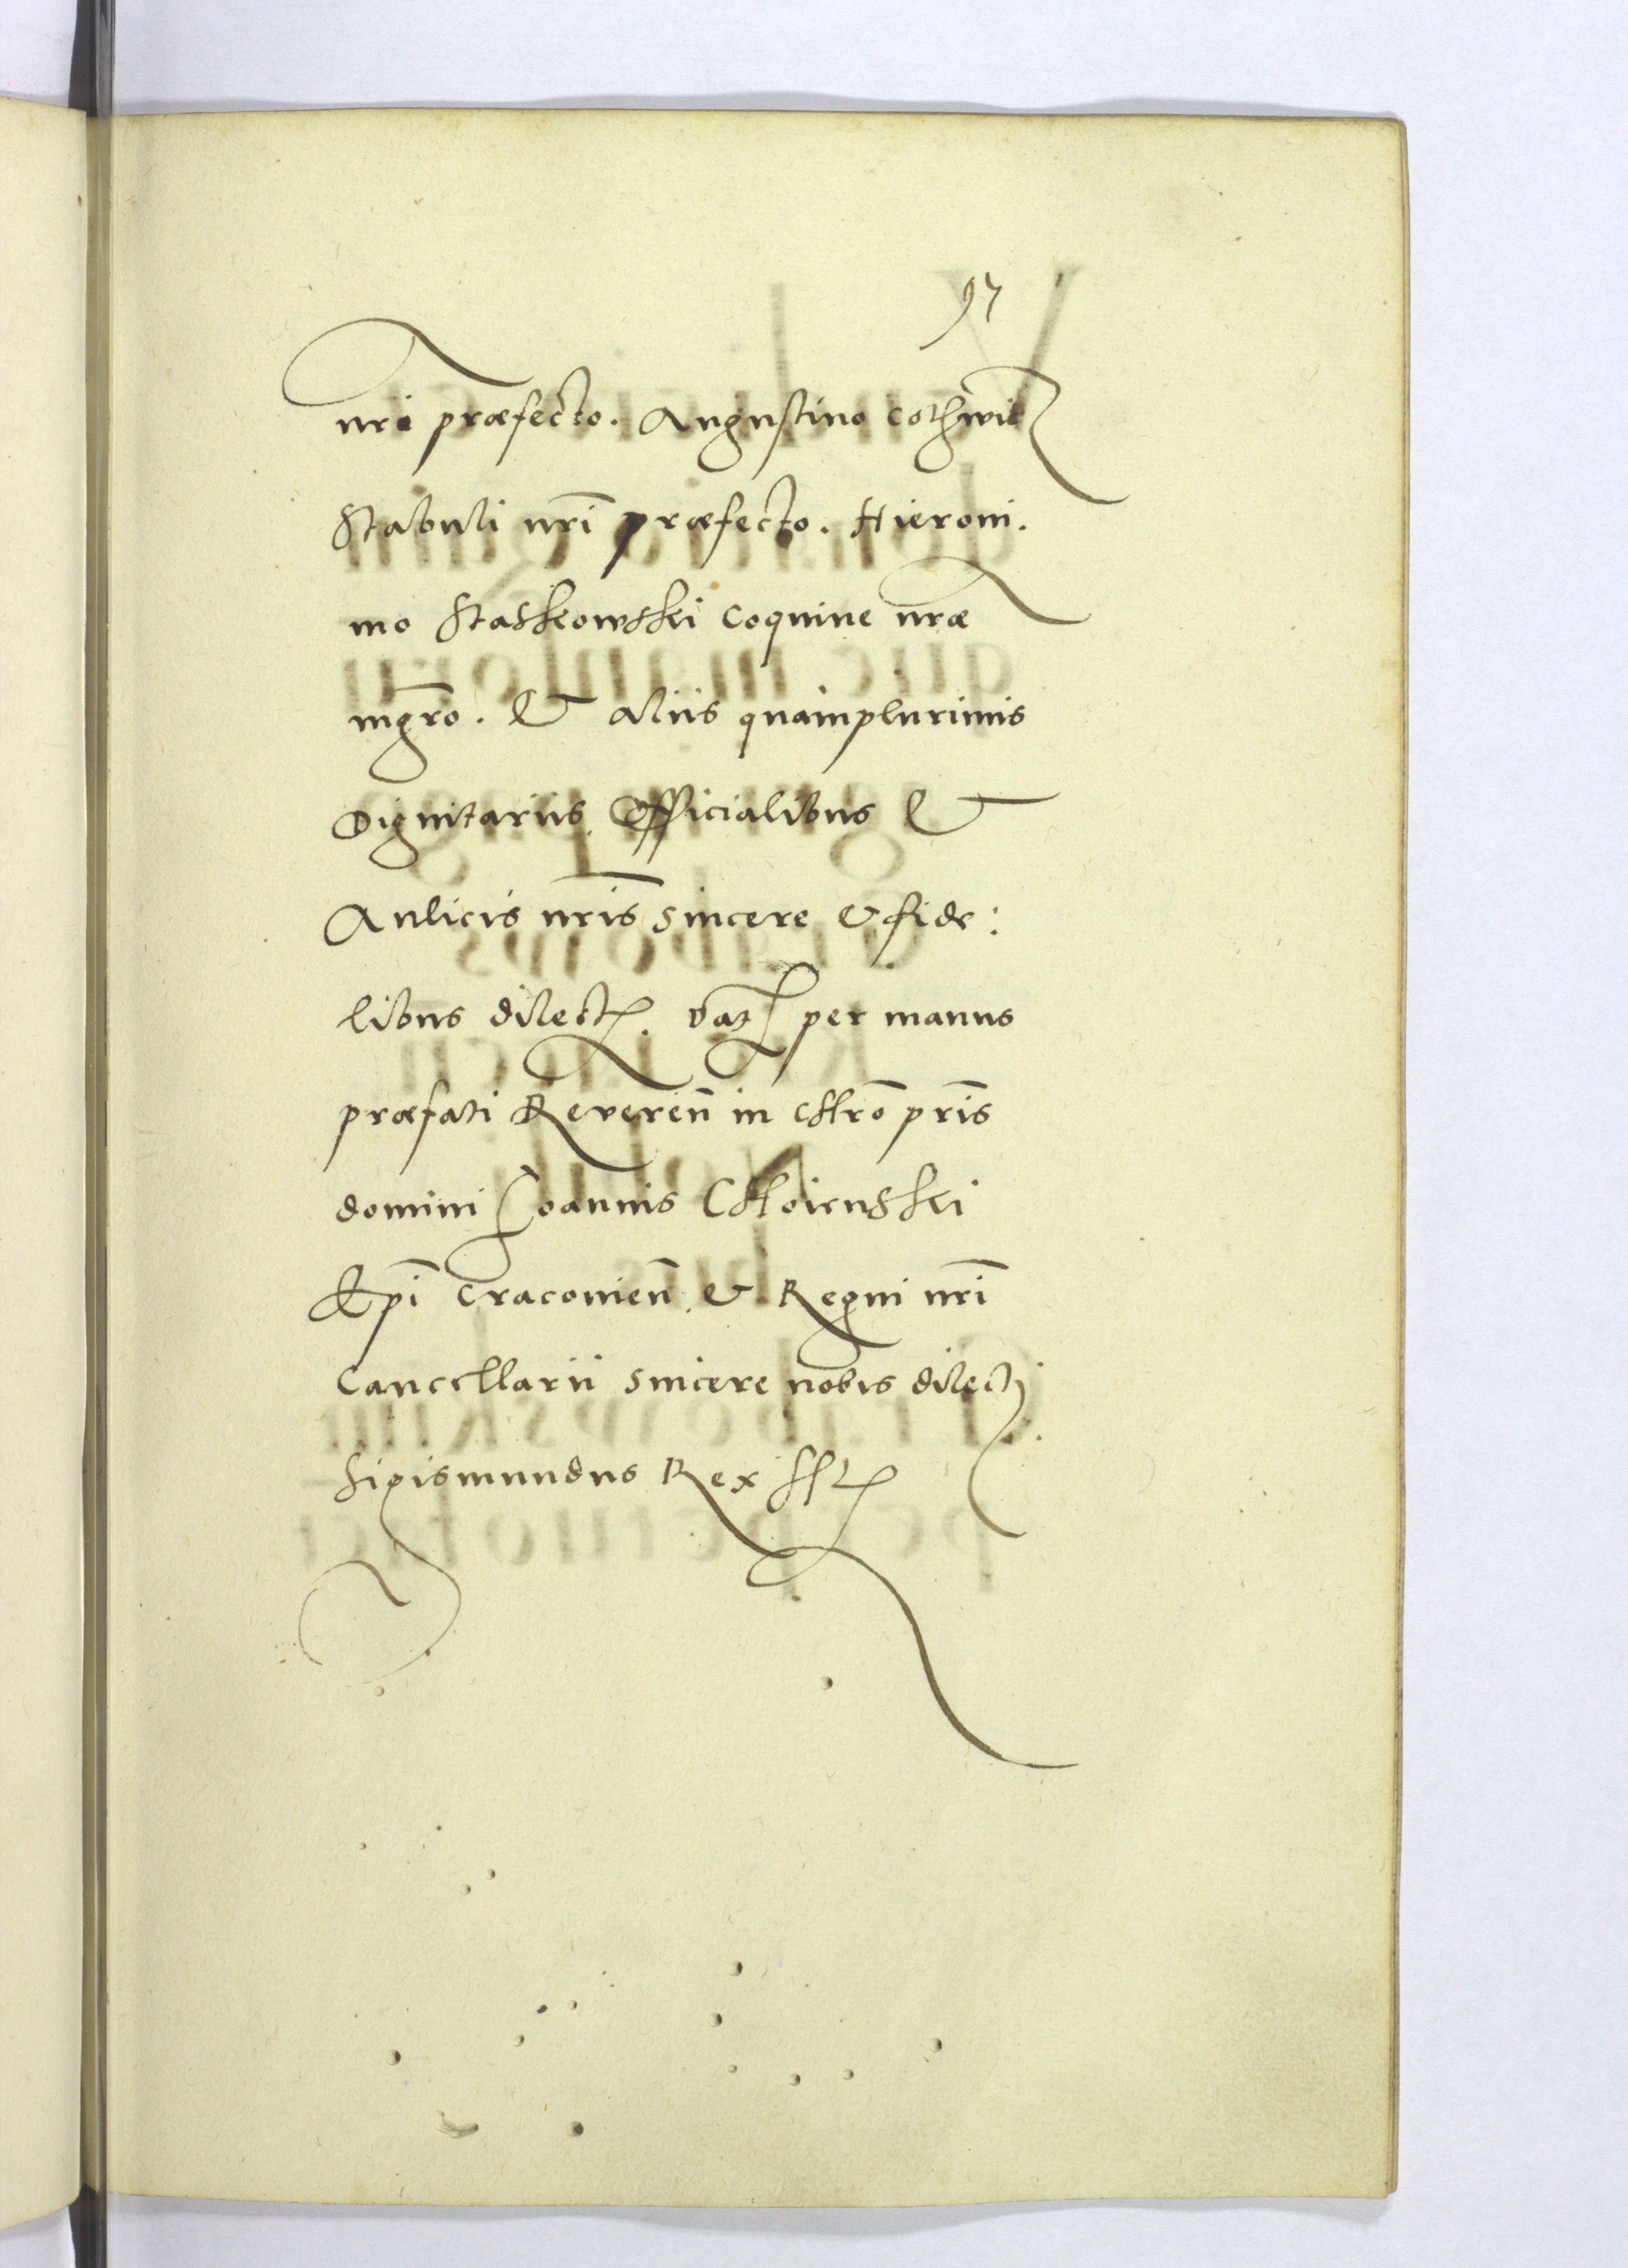 97
nri præfecto. Augustino Cothwicz
Stabuli nr̄i præfecto. Hieroni.
mo Staskowski Coquine nræ
mgr̄o. Et aliis quamplurimis
Dignitariis, Officialibus Et
Aulicis nr̄is Sincere & fide:
libus dilect. Dat per manus
præfati Reveren̄ in Chro pr̄is
domini Joannis Choienski
Epi Cracovien̄. & Regni nr̄i
Cancellarii Sincere nobis dilecti
Sigismundus Rex sst